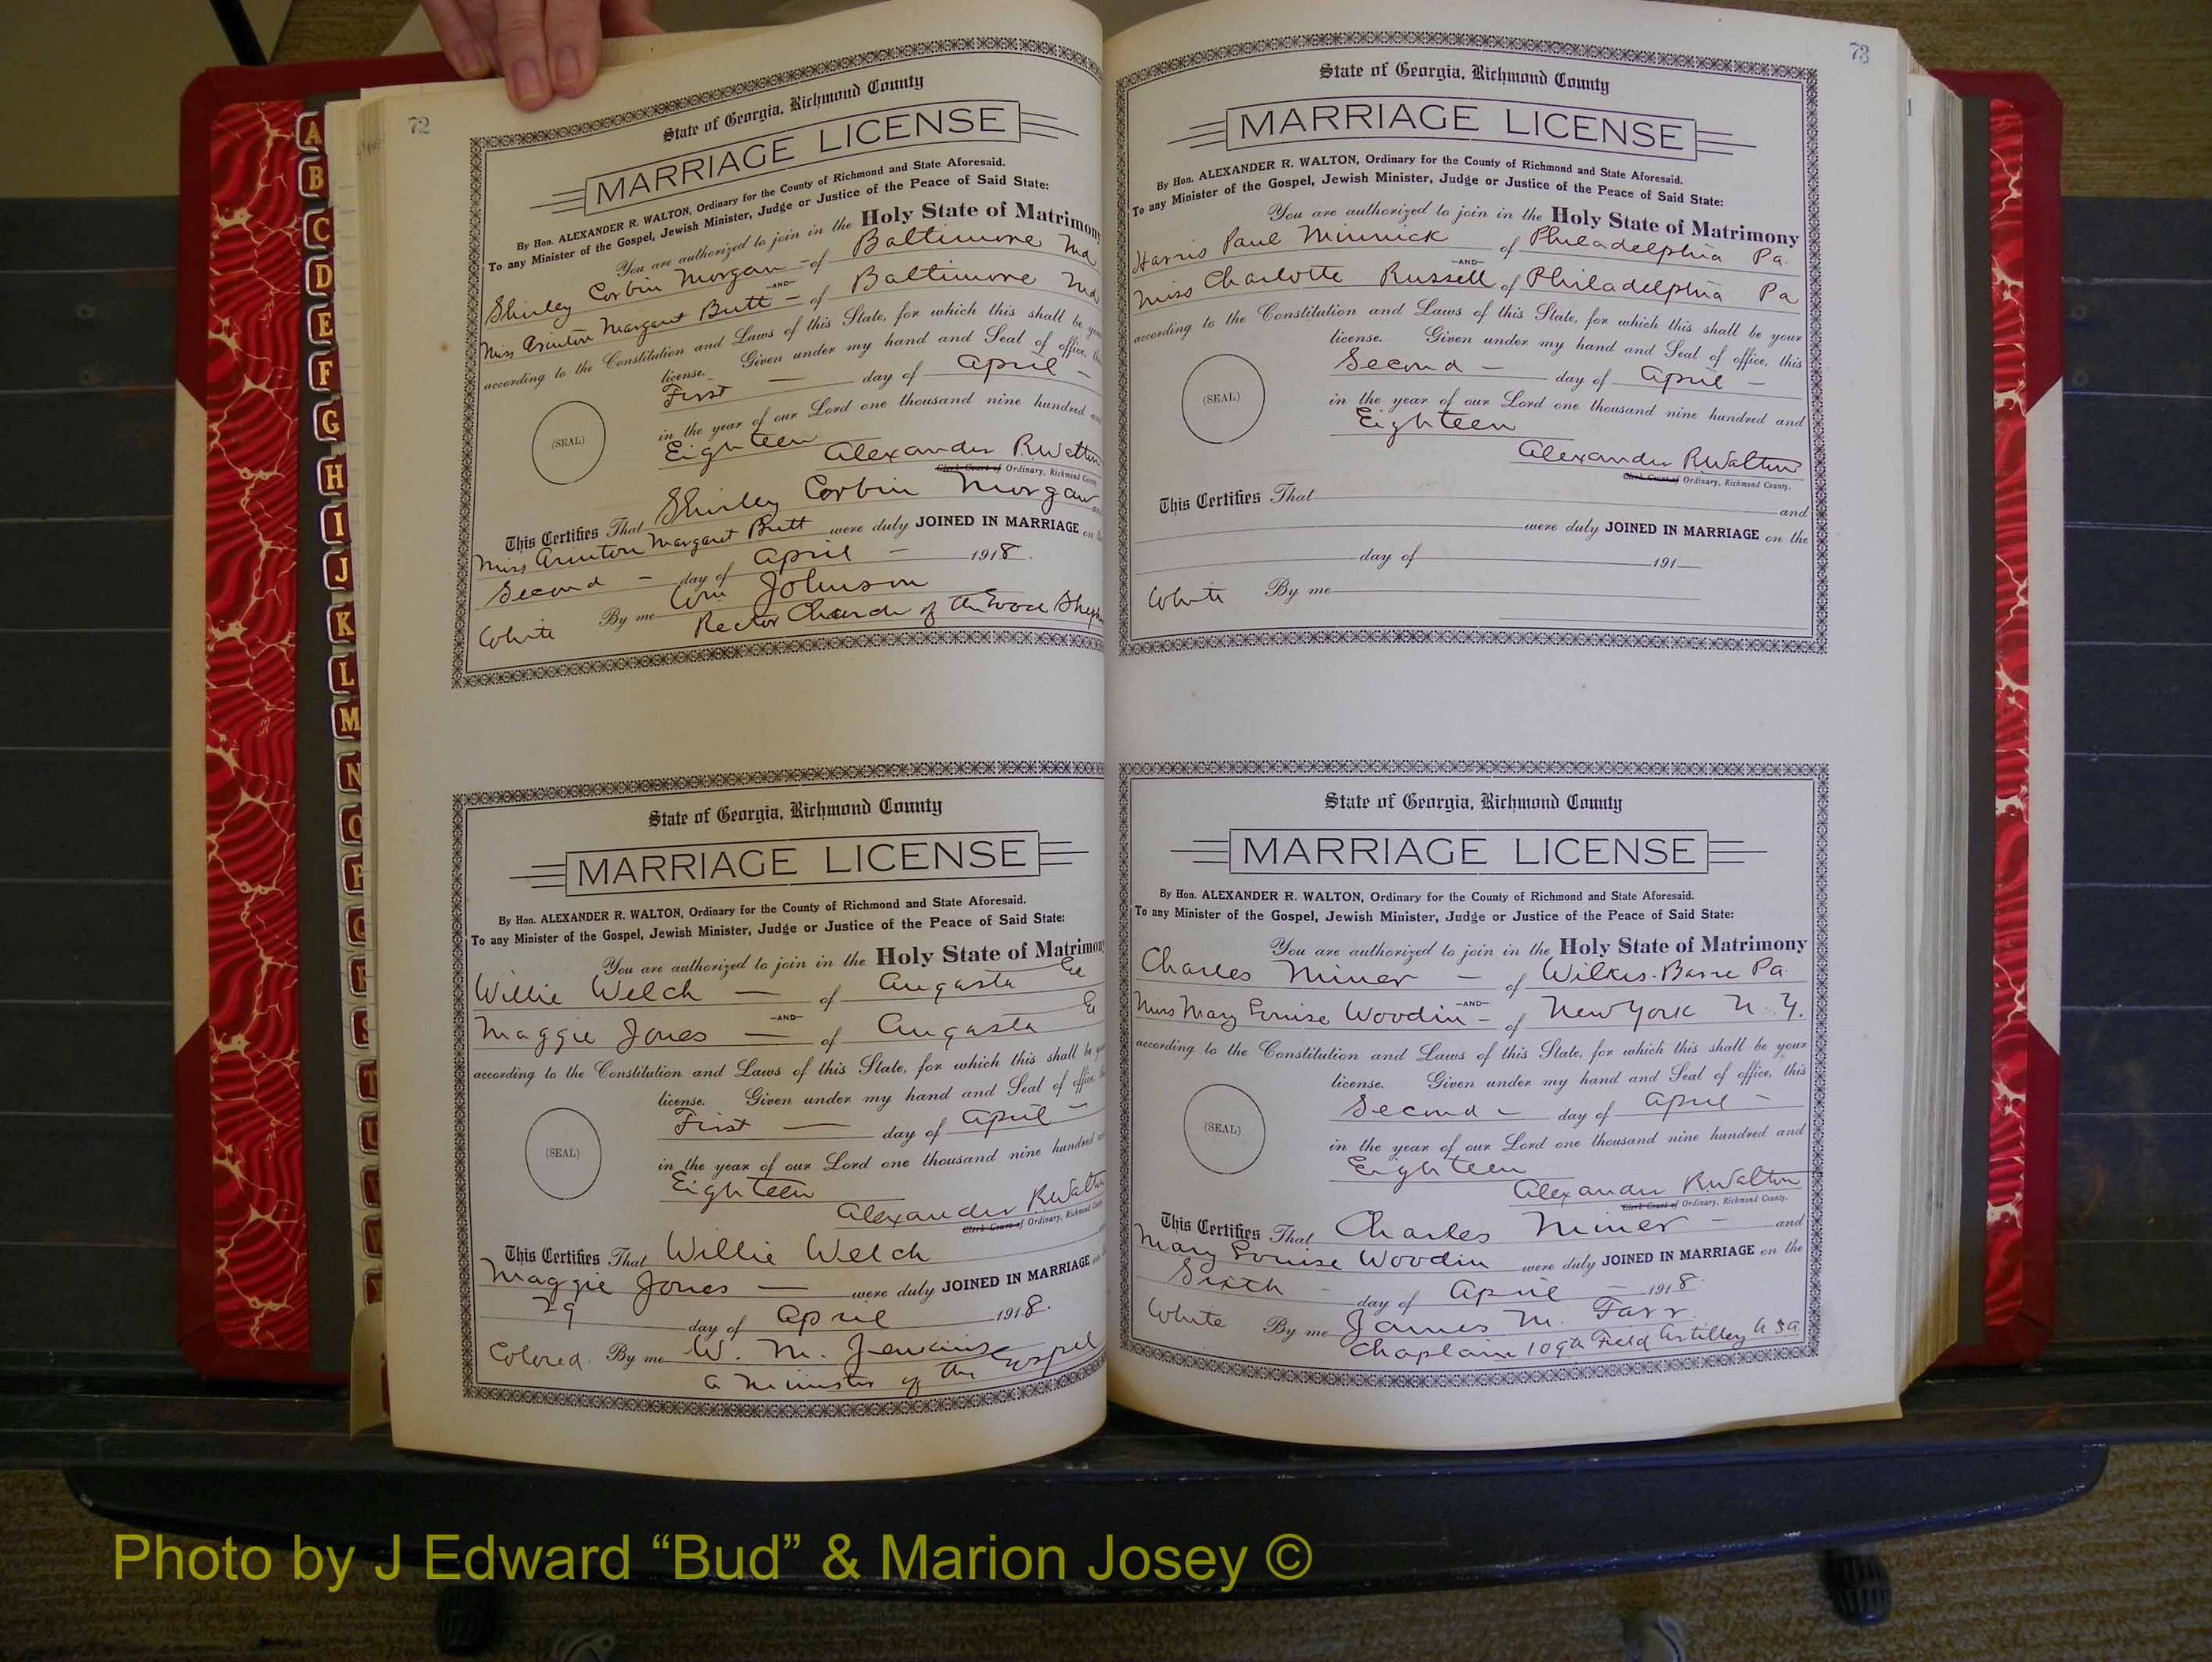 72
State of Georgia, Richmond County
MARRIAGE LICENSE
By Hon. ALEXANDER R. WALTON, Ordinary for the County of Richmond and State Aforesaid.
To any Minister of the Gospel, Jewish Minister, Judge or Justice of the Peace of Said State:
You are authorized to join in the Holy State of Matrimony
Shirley Corbin Morgan - of Baltimore Md
-AND-
Miss Margaret Butt - of Baltimore Md
according to the Constitution and Laws of this State, for which this shall be
license. Given under my hand and Seal of office,
First - day of April -
(SEAL)
in the year of our Lord one thousand nine hundred
Eighteen
Alexander R. Walton
Clerk Court of Ordinary, Richmond County
This Certifies That Shirley Corbin Morgan
Miss Margaret Butt were duly JOINED IN MARRIAGE on
Second - day of April - 1918.
White By me Wm Johnson
Rector Church of the Good
State of Georgia, Richmond County
MARRIAGE LICENSE
By Hon. ALEXANDER R. WALTON, Ordinary for the County of Richmond and State Aforesaid.
To any Minister of the Gospel, Jewish Minister, Judge or Justice of the Peace of Said State:
You are authorized to join in the Holy State of Matrimony
Willie Welch - of Augusta Ga
-AND-
Maggie Jones - of Augusta Ga
according to the Constitution and Laws of this State, for which this shall be
license. Given under my hand and Seal of office,
First - day of April -
(SEAL)
in the year of our Lord one thousand nine hundred
Eighteen
Alexander R. Walton
Clerk Court of Ordinary, Richmond County
This Certifies That Willie Welch
Maggie Jones - were duly JOINED IN MARRIAGE
29 day of April 1918.
Colored. By me W. M. Jenkins
a minister of the Gospel
73
State of Georgia, Richmond County
MARRIAGE LICENSE
By Hon. ALEXANDER R. WALTON, Ordinary for the County of Richmond and State Aforesaid.
To any Minister of the Gospel, Jewish Minister, Judge or Justice of the Peace of Said State:
You are authorized to join in the Holy State of Matrimony
Harris Paul Minnick of Philadelphia Pa.
-AND-
Miss Charlotte Russell of Philadelphia Pa
according to the Constitution and Laws of this State, for which this shall be your
license. Given under my hand and Seal of office, this
Second - day of April -
(SEAL)
in the year of our Lord one thousand nine hundred and
Eighteen
Alexander R. Walton
Clerk Court of Ordinary, Richmond County.
This Certifies That and
were duly JOINED IN MARRIAGE on the
day of 191
White By me
State of Georgia, Richmond County
MARRIAGE LICENSE
By Hon. ALEXANDER R. WALTON, Ordinary for the County of Richmond and State Aforesaid.
To any Minister of the Gospel, Jewish Minister, Judge or Justice of the Peace of Said State:
You are authorized to join in the Holy State of Matrimony
Charles Miner - of Wilkes-Barre Pa.
-AND-
Miss Mary Louise Woodin - of New York N.Y.
according to the Constitution and Laws of this State, for which this shall be your
license. Given under my hand and Seal of office, this
Second - day of April -
(SEAL)
in the year of our Lord one thousand nine hundred and
Eighteen
Alexander R. Walton
Clerk Court of Ordinary, Richmond County.
This Certifies That Charles Miner - and
Mary Louise Woodin were duly JOINED IN MARRIAGE on the
Sixth - day of April - 1918.
White By me James M. Farr
Chaplain 109th Field Artillery USA
A
B
C
D
E
F
G
H
I
J
K
L
M
N
O
P
Q
R
S
T
U
V
W
Photo by J Edward “Bud” & Marion Josey ©